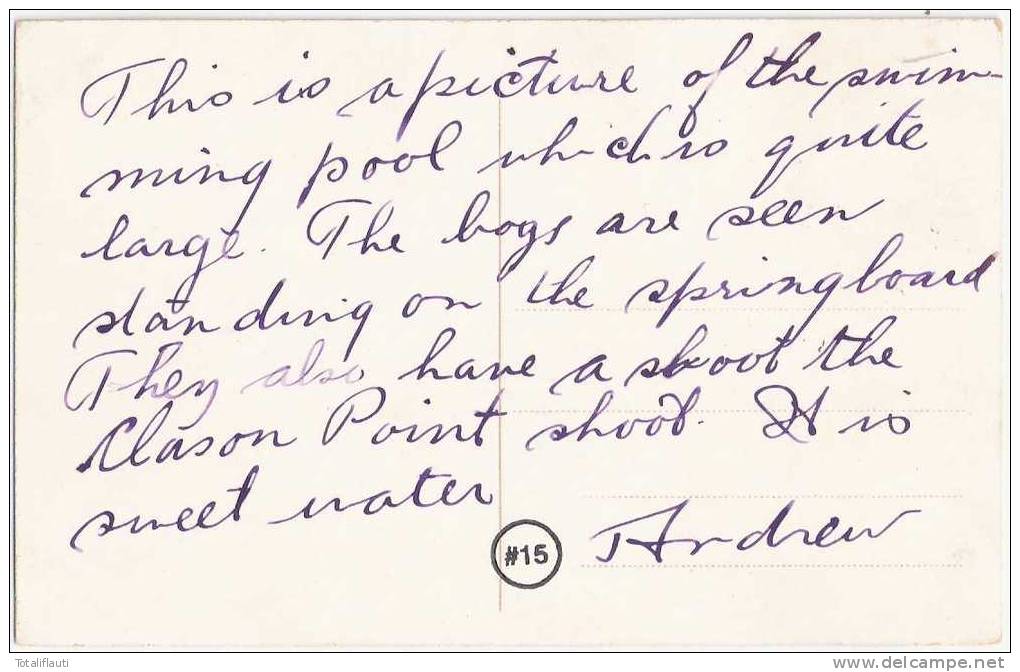 This is a picture of the swim-
ming pool which is quite
large. The boys are seen
standing on the springboard
They also have a shoot the
Clason Point shoot. It is
sweet water
Andrew
#15
Totaliflauti
www.delcampe.net